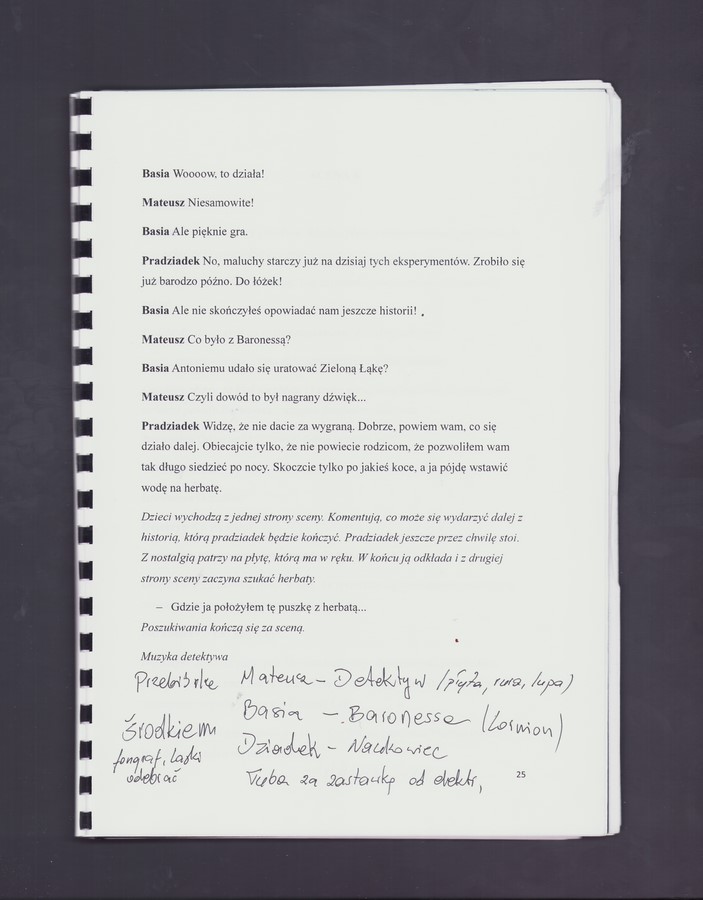 Basia Woooow, to działa!
Mateusz Niesamowite!
Basia Ale pięknie gra.
Pradziadek No, maluchy starczy już na dzisiaj tych eksperymentów. Zrobiło się
już barodzo późno. Do łóżek!
Basia Ale nie skończyłeś opowiadać nam jeszcze historii!
Mateusz Co było z Baronessą?
Basia Antoniemu udało się uratować Zieloną Łąkę?
Mateusz Czyli dowód to był nagrany dźwięk...
Pradziadek Widzę, że nie dacie za wygraną. Dobrze, powiem wam, co się
działo dalej. Obiecajcie tylko, że nie powiecie rodzicom, że pozwoliłem wam
tak długo siedzieć po nocy. Skoczcie tylko po jakieś koce, a ja pójdę wstawić
wodę na herbatę.
Dzieci wychodzą z jednej strony sceny. Komentują, co może się wydarzyć dalej z
historią, którą pradziadek będzie kończyć. Pradziadek jeszcze przez chwilę stoi.
Z nostalgią patrzy na płytę, którą ma w ręku. W końcu ją odkłada i z drugiej
strony sceny zaczyna szukać herbaty.
– Gdzie ja położyłem tę puszkę z herbatą...
Poszukiwania kończą się za sceną.
Muzyka detektywa
Przebiórka Mateusz – Detektyw (płyta, rura, lupa)
Basia – Baronessa (Lornion)
środkiem
Dziadek – Naukowiec
fongraf, Laski
odebrać Tuba za zastawkę od elektr,
25